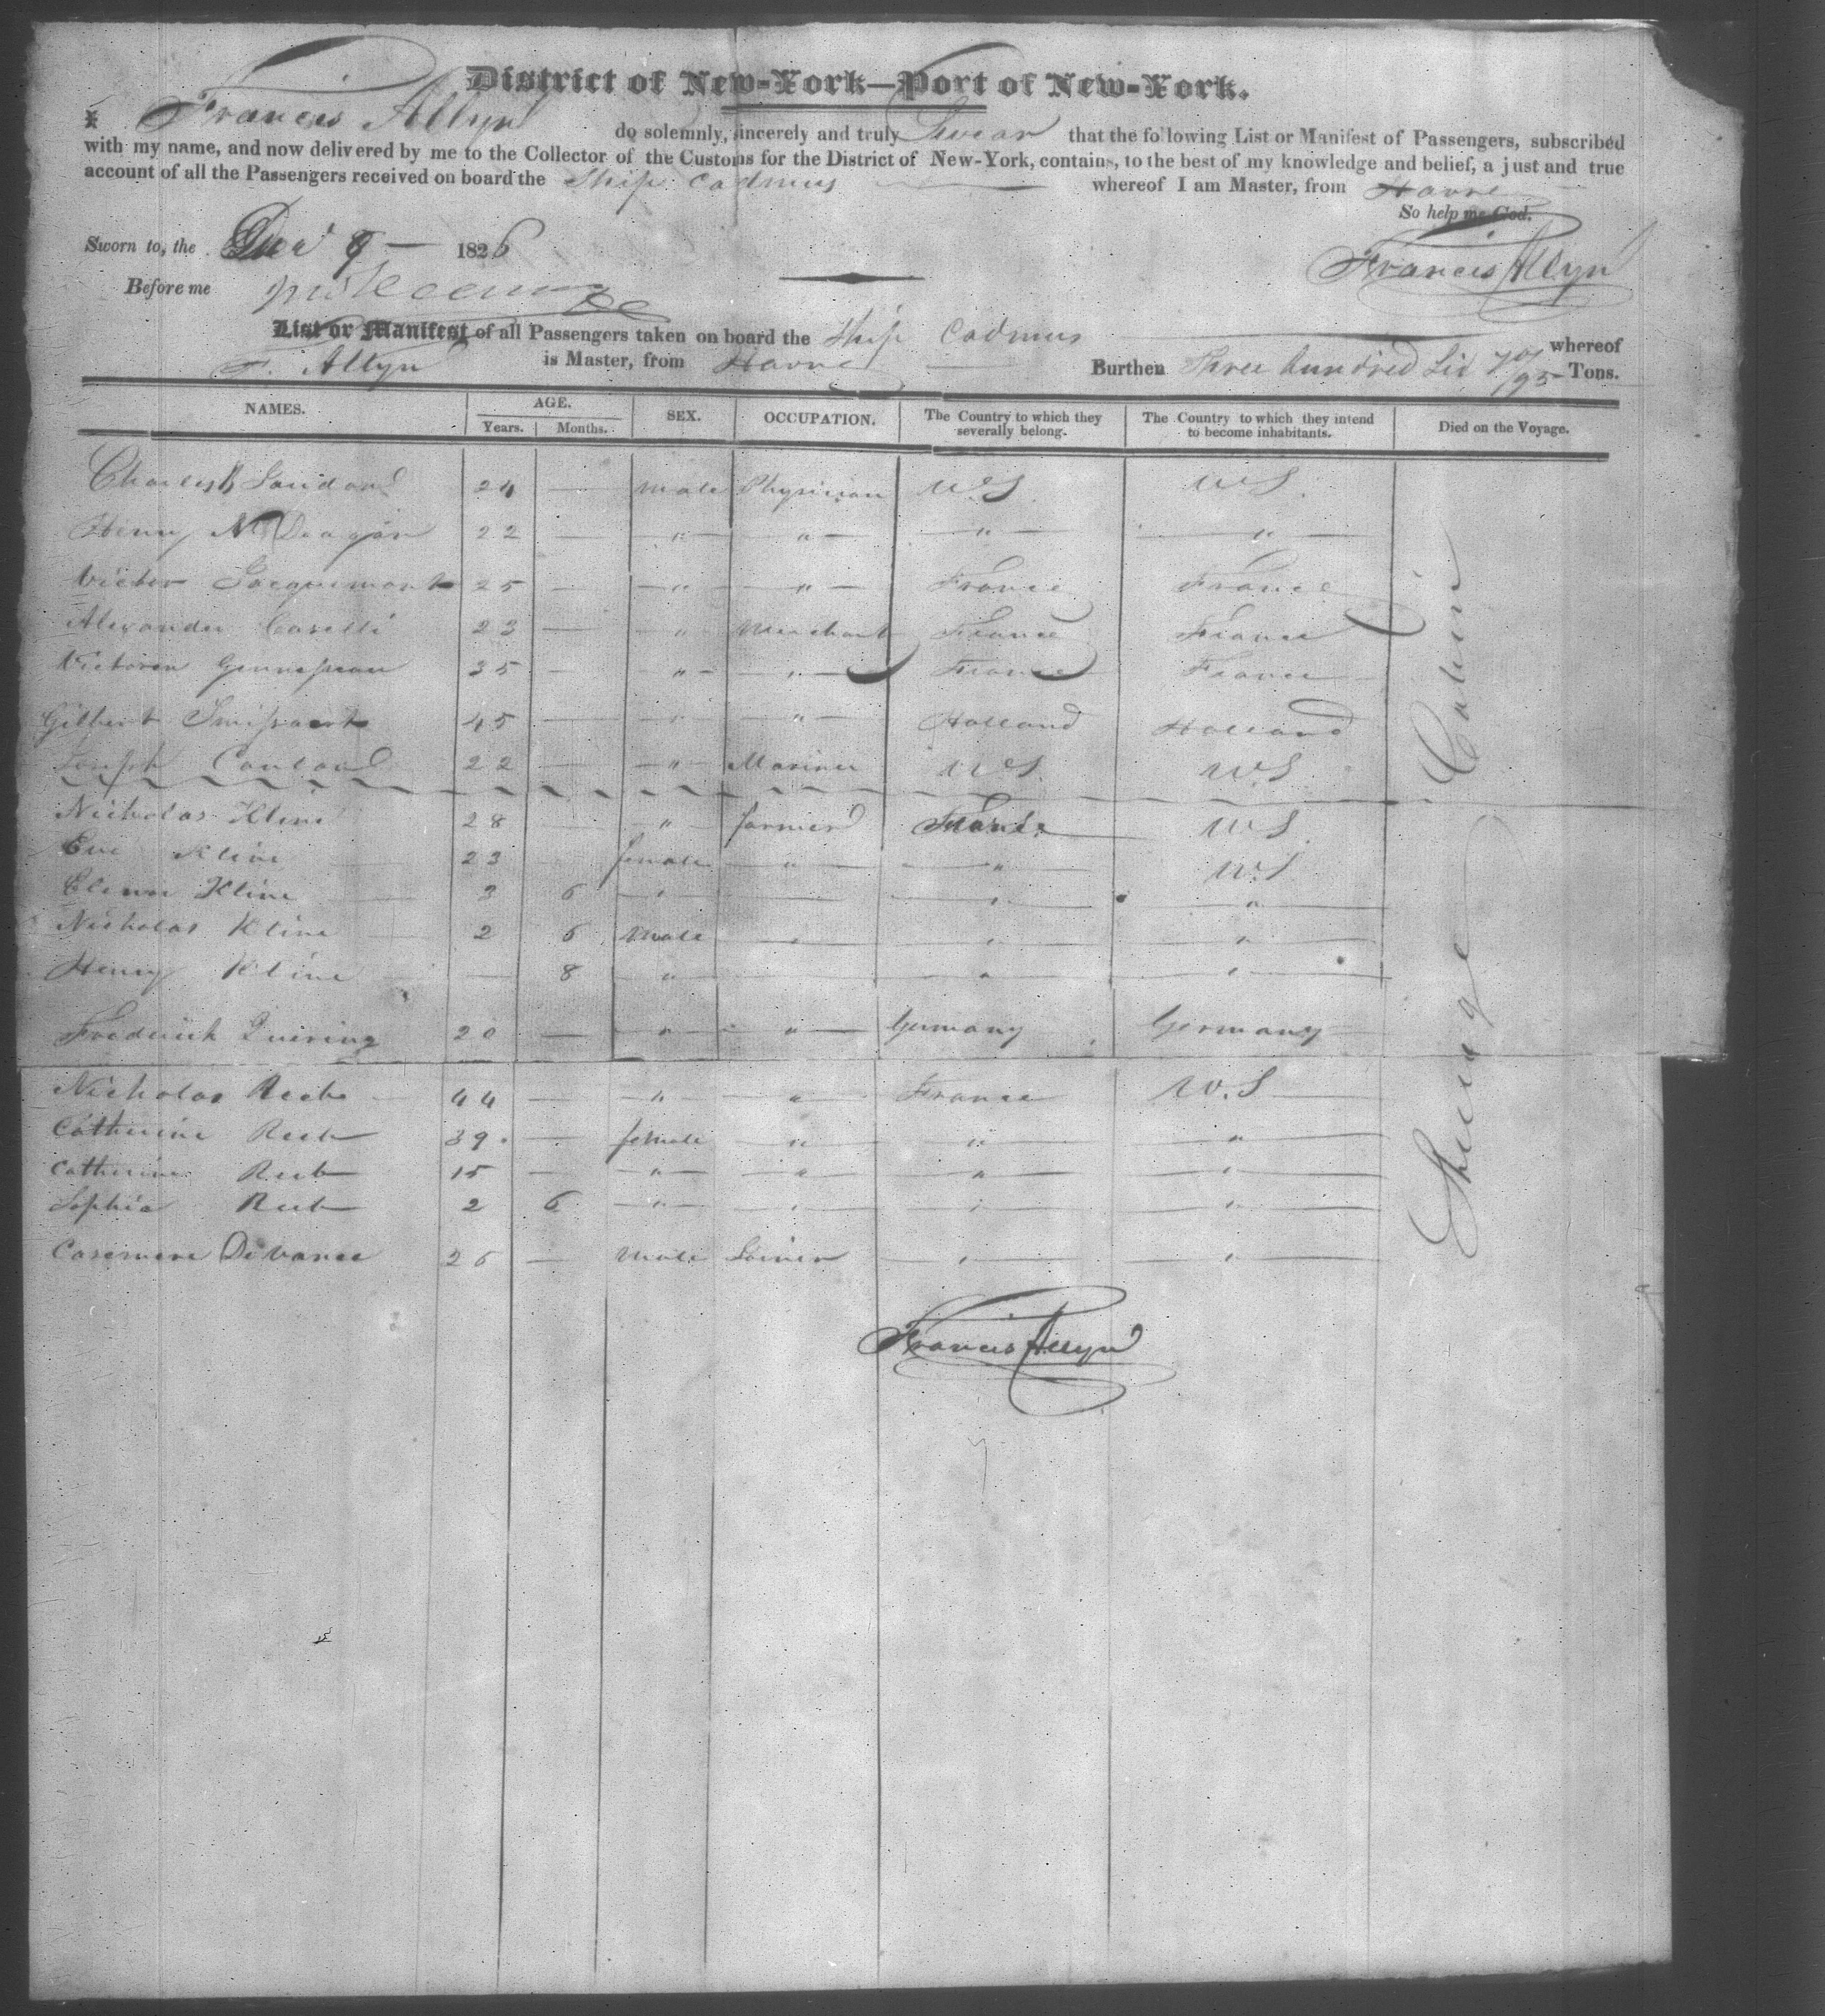 District of New-York—Port of New-York.
I Francis Allyn do solemnly, sincerely and truly Swear that the following List or Manifest of Passengers, subscribed
with my name, and now delivered by me to the Collector of the Customs for the District of New-York, contains, to the best of my knowledge and belief, a just and true
account of all the Passengers received on board the Ship Cadmus whereof I am Master, from Havre
So help me God.
Sworn to, the 9 — 1826
Francis Allyn
Before me
List or Manifest of all Passengers taken on board the Ship Cadmus whereof
F. Allyn is Master, from Havre Burthen Three hundred Six 70/95 Tons.
NAMES. AGE. SEX. OCCUPATION. The Country to which they severally belong. The Country to which they intend to become inhabitants. Died on the Voyage.
Years. Months.
Charles 24 — male Physician U.S. U.S.
Henry 22 — " " " "
Victor Jacquemont 25 — " " France France
Alexander Caselli 23 — " Merchant France France
35 — " " France France
Gilbert 45 — " " Holland Holland
Joseph 22 — " Mariner U.S. U.S.
Cabin
Nicholas Kline 28 — " farmer France U.S.
Eve Kline 23 female " " U.S.
Kline 3 6 " — " "
Nicholas Kline 2 6 male " " "
Henry Kline — 8 " " "
Frederick 20 — " " Germany Germany
Nicholas Reeb 44 — " " France U.S.
Catherine Reeb 39 — female " " "
Catherine Reeb 15 — " " " "
Sophia Reeb 2 6 " " " "
Casemere 26 — male " "
Steerage
Francis Allyn